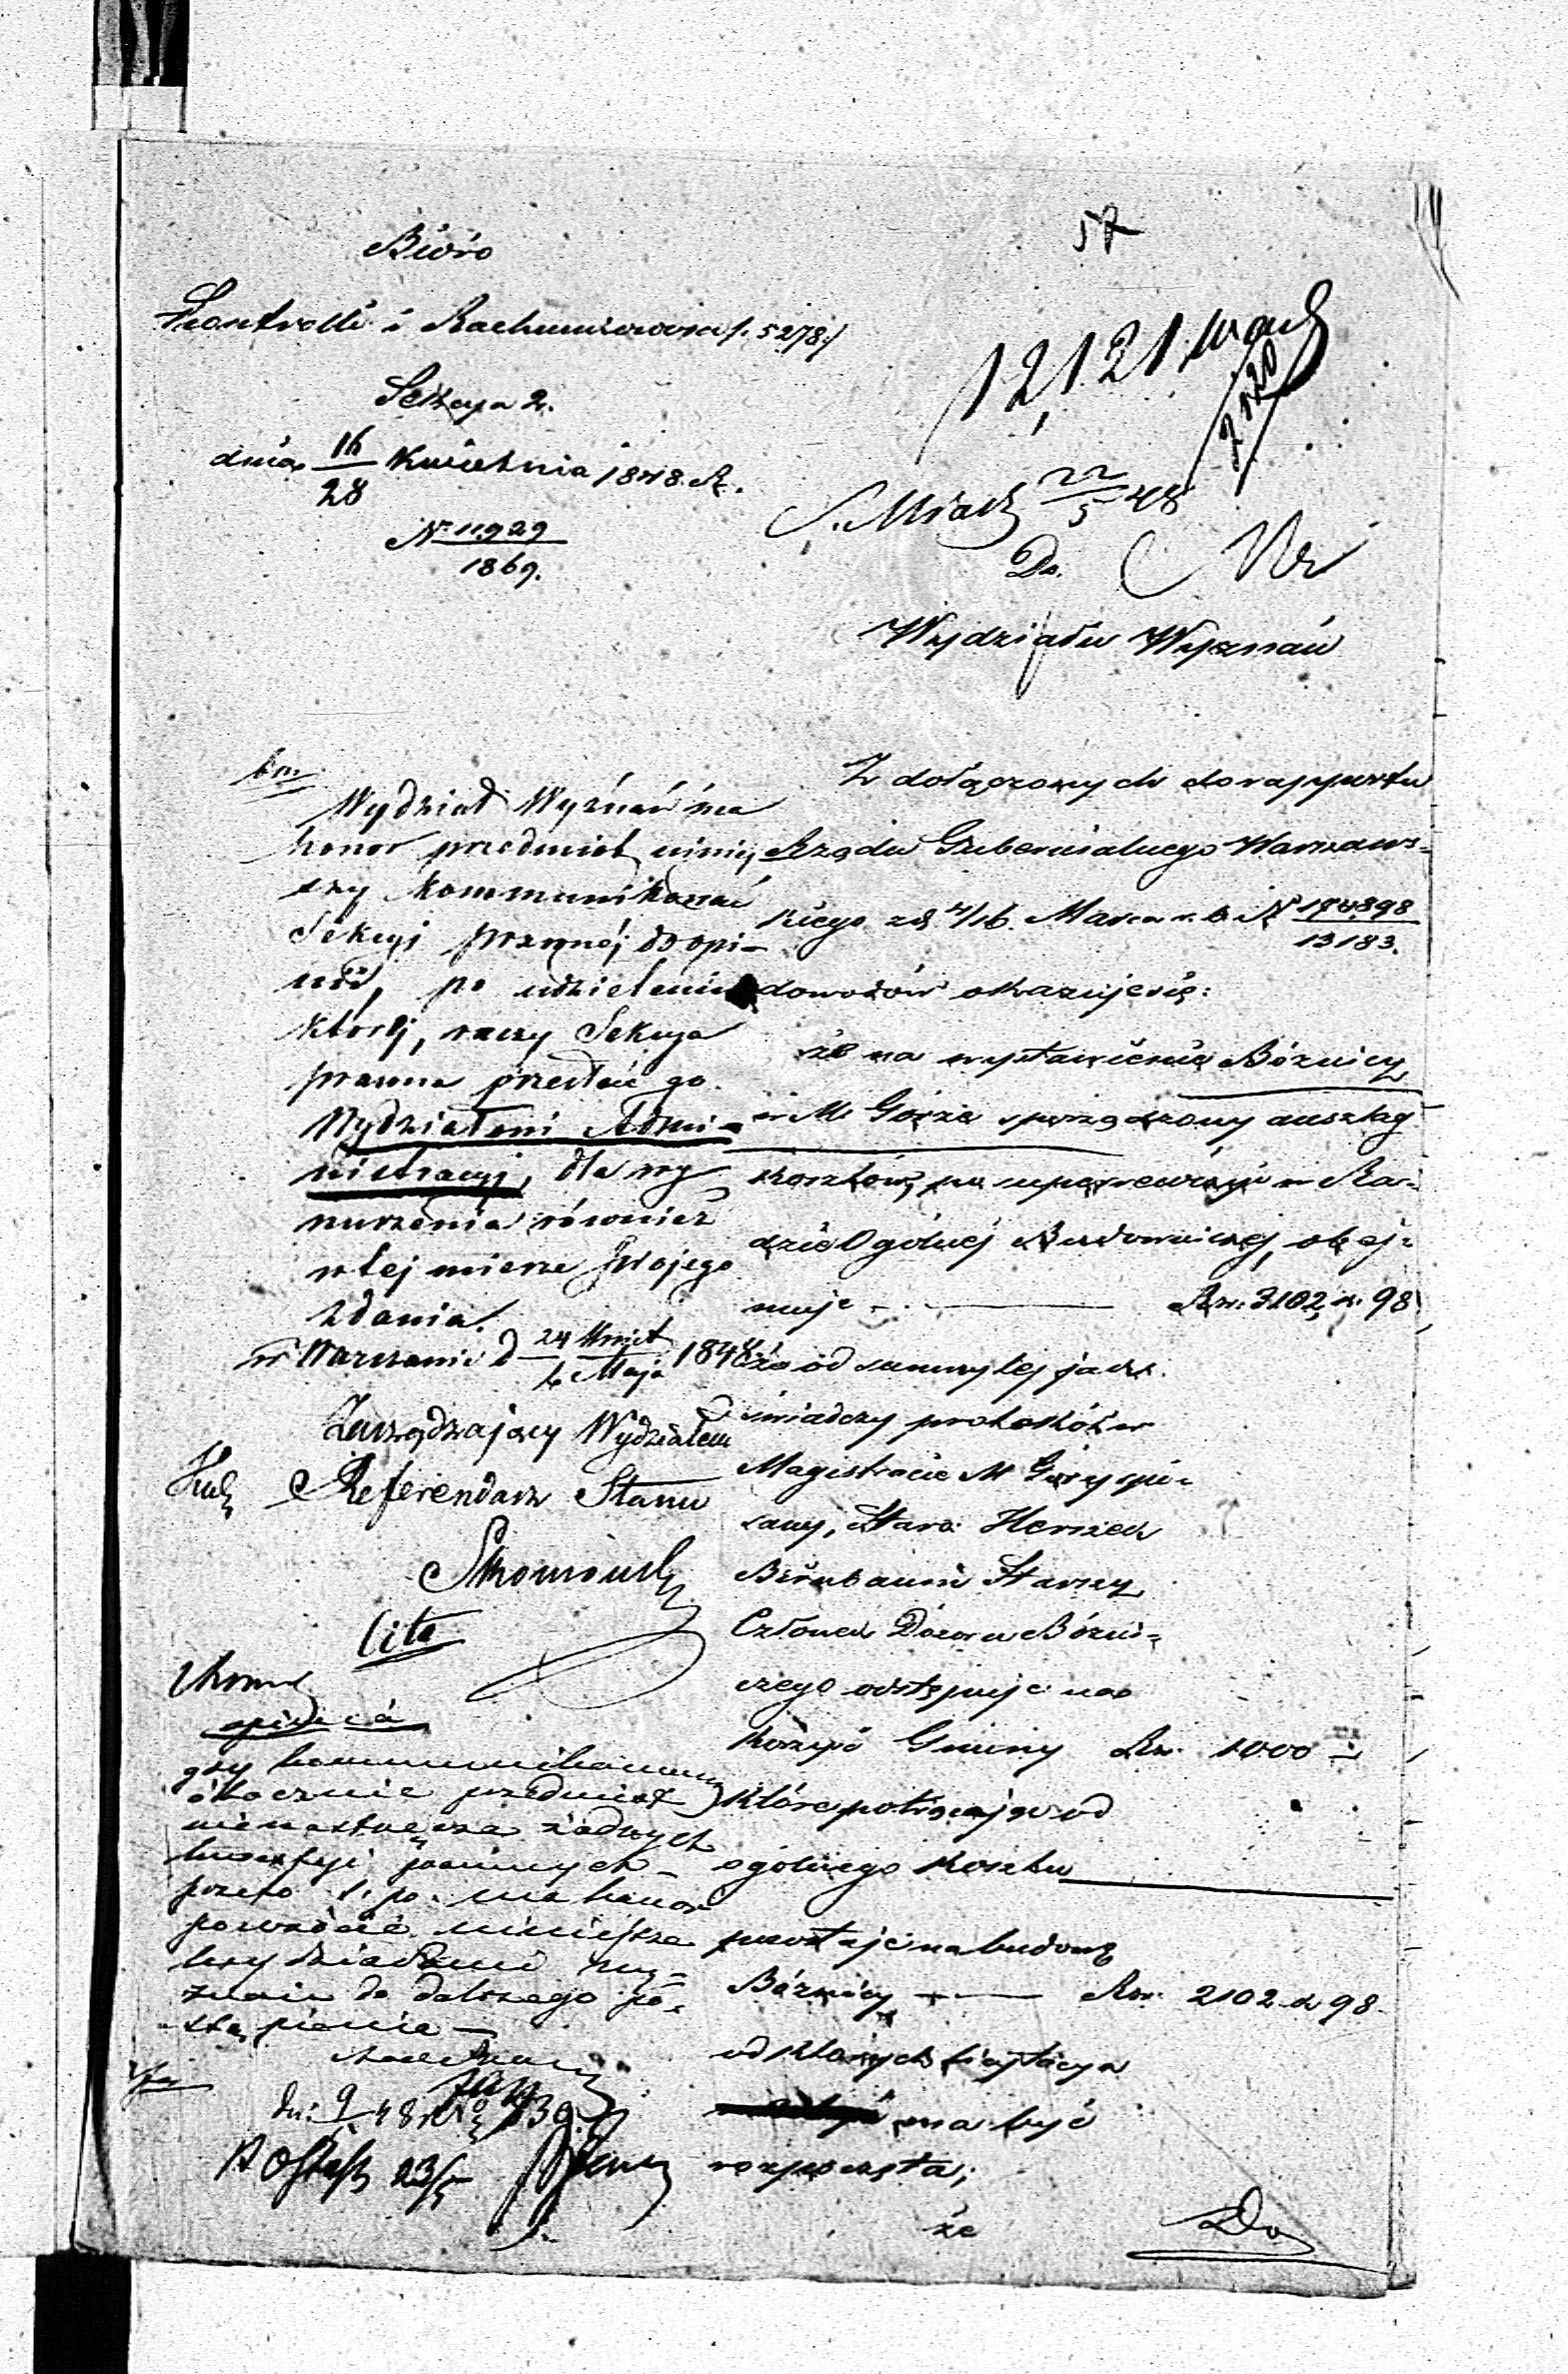 57
Bióro
Kontrolli i Rachunkowa /. 5278 ./
Sekcya 2.
dnia 16/28 Kwietnia 1848 R.
N 11929/1869.
12,121
22/5 48
Do
Wydziału Wyznań
Z dołączonych do rapportu
Rządu Gubernialnego Warszaws-
kiego z d 4/16. Marca r. b. N
13183.
dowodów okazuje się:
że na wystawienie Bóżnicy
w M. Górze sporządzony anszlag
kosztów, po superrewizyi w Ra-
dzie Ogólnej Budowniczej, obej-
muje - Rs. 3102, k. 98
że od summy tej jak
świadczy protokół w
Magistracie M Góry spi-
sany, Staro: Herszek
Birnbaum Starszy
Członek Dozoru Bóżni-
czego odstępuje na
korzyść Gminy Rs. 1000 -
które potrącając od
ogólnego kosztu
pozostaje na budowę
Bóżnicy - Rs. 2102 k 98.
od których licytacya
ma być
rozpoczęta;
że
Do
Wydział Wyznań ma
honor przedmiot niniej
szy kommunikować
Sekcyi prawnej do opi-
nii, po udzieleniu
której, raczy Sekcya
prawna przesłać go
Wydziałowi Admi-
nistracyi, dla wy
nurzenia również
w tej mierze swojego
zdania.
w Warszawie d 24 Kwiet/6 Maja 1848
Zarządzający Wydziałem
Referendarz Stanu
Cito
opinia
gdy kommunikowany
obocznie przedmiot
nienastręcza żadnych
kwestyi prawnych -
przeto S. p. ma honor
powrócić niniejsze
Wydziałowi Wy-
znań do dalszego po-
stąpienia -
23/5